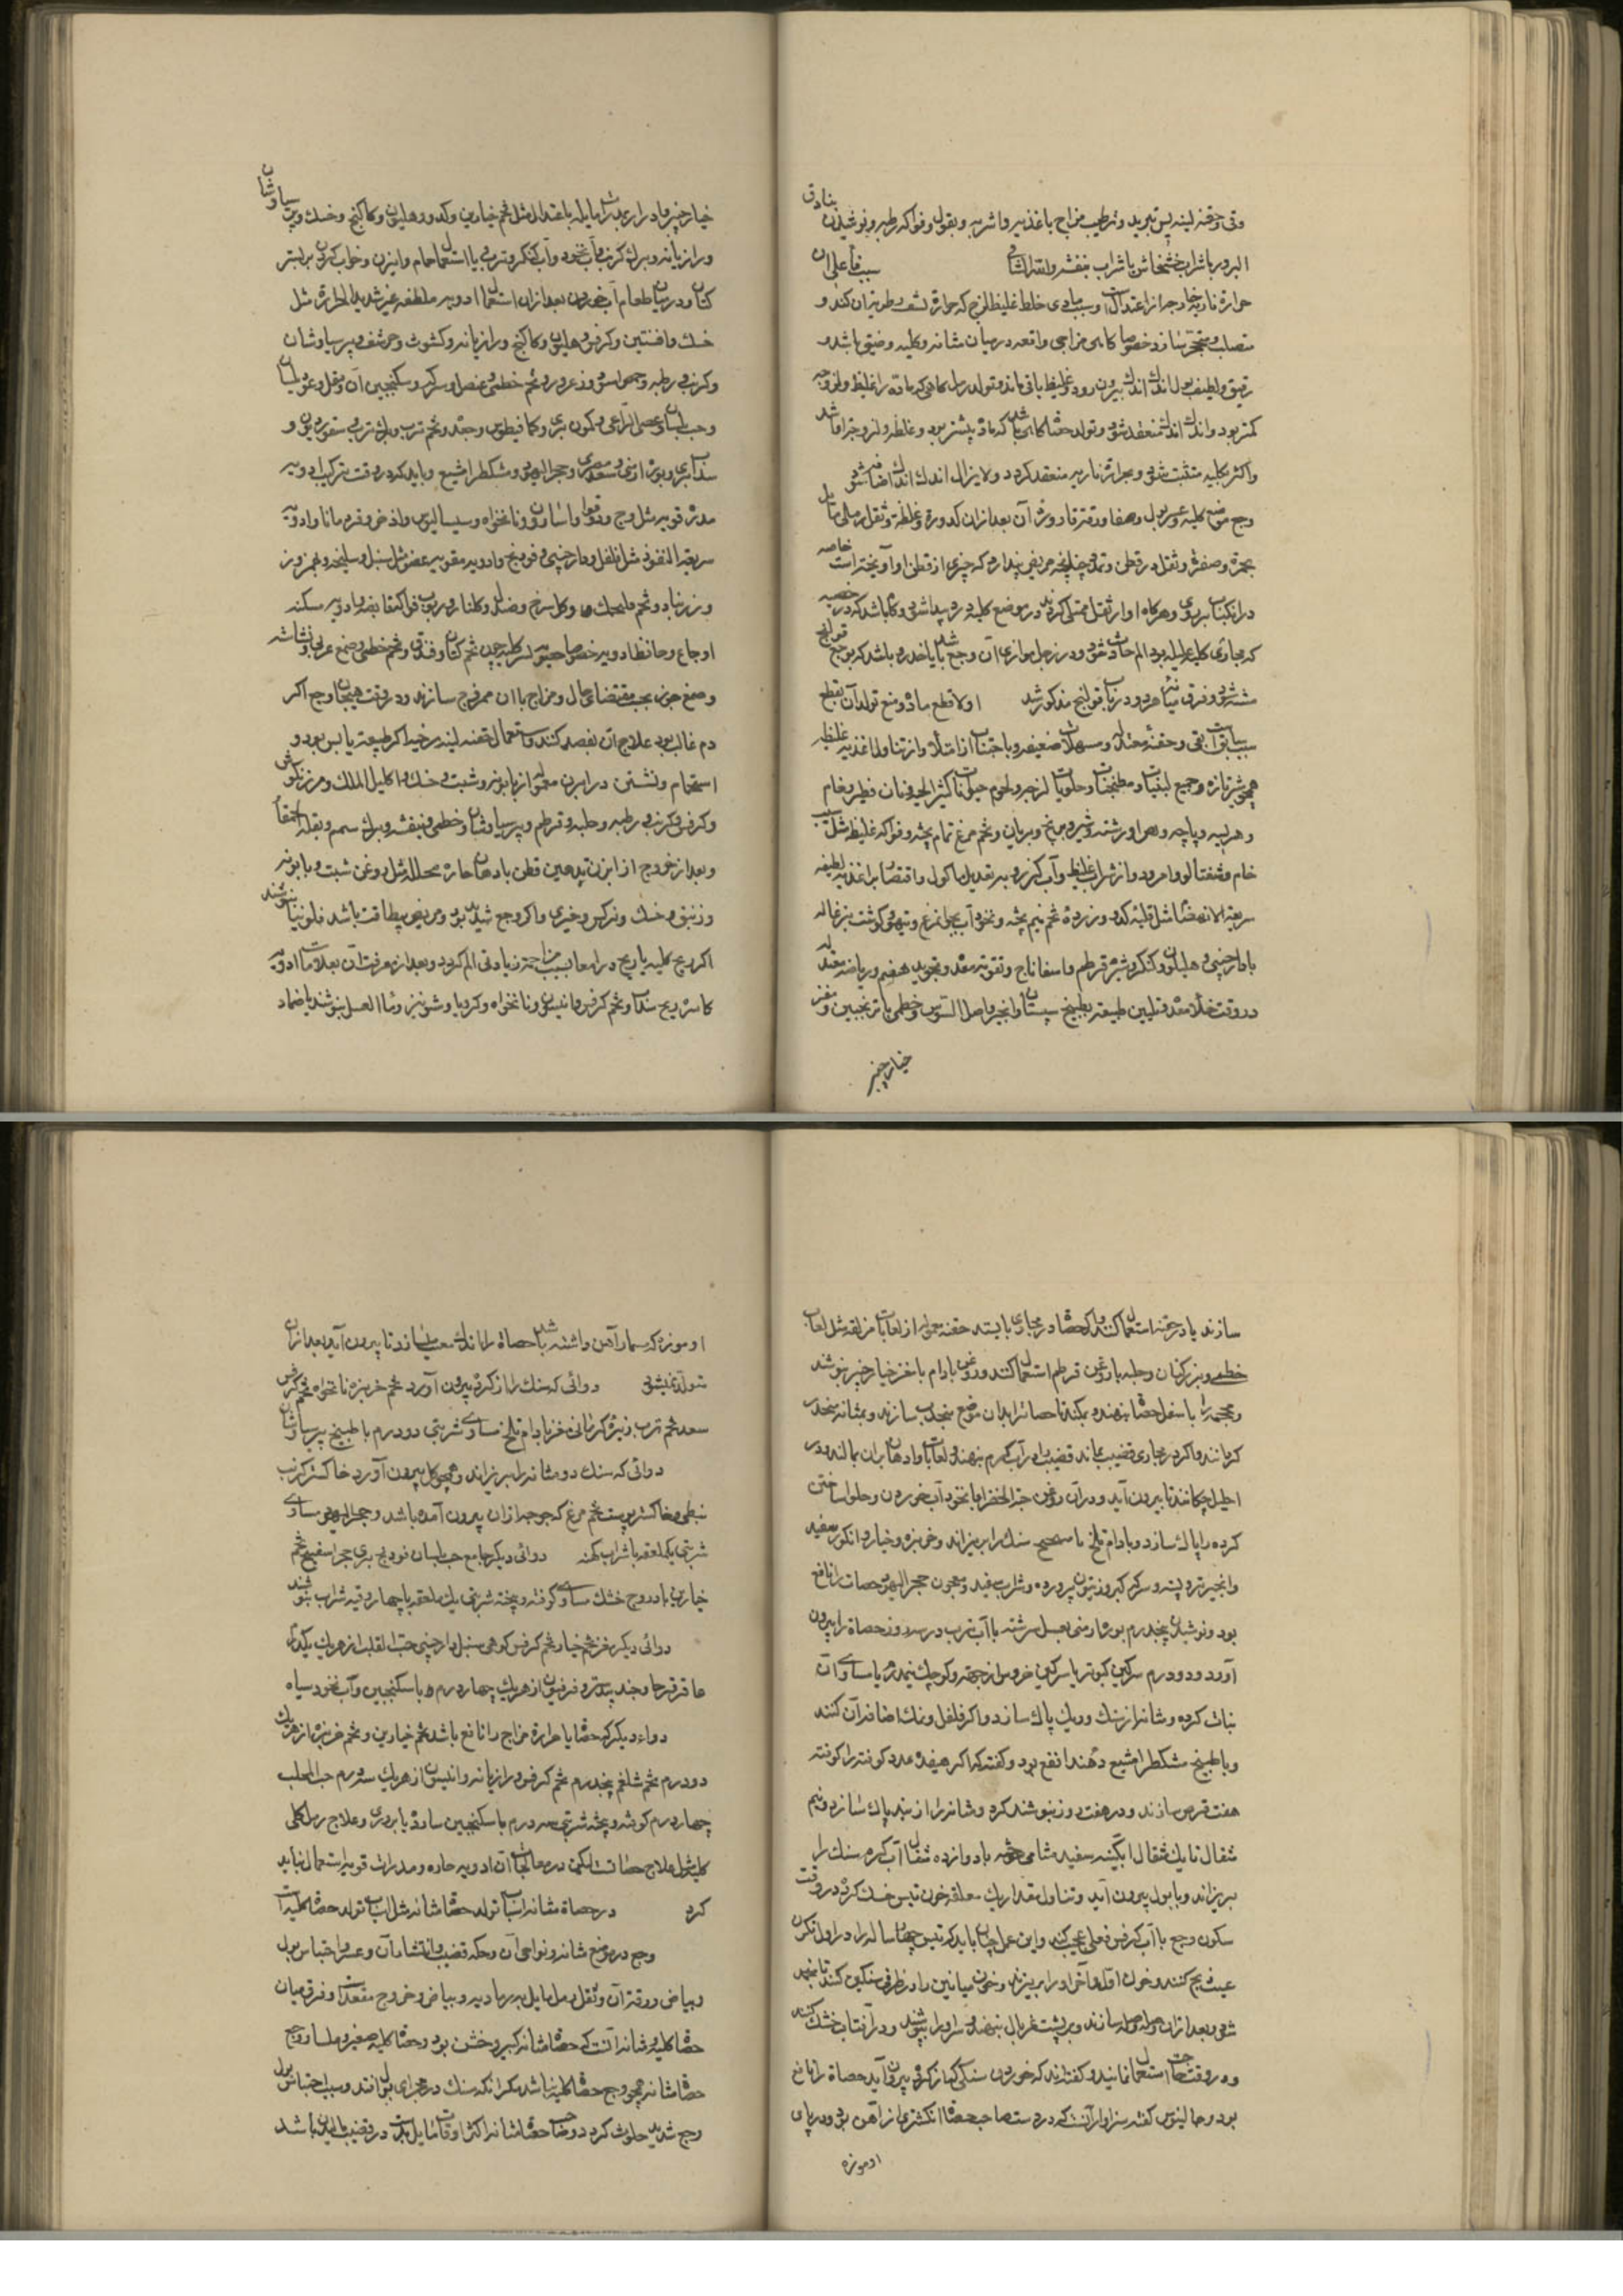 وقی و حقنه لینه پس تبرید و ترطیب مزاج باغذیه و اشربه و بقول و فواکه رطبه و نوشیدن بنادق
البزور باشراب خشخاش یا شراب بنفشه والله الشافی سبب فاعلی آن
حرارة ناریه خارجه از اعتدالست و سبب مادی خلط غلیظ لزج که حرارة نشف رطوبة آن کند و
متصلب و متحجر سازد خصوصا کاهی مزاجی واقعه درمیان مثانه و کلیه و ضیقی باشد و
رقیق و لطیف بول اندک اندک بیرون رود و غلیظ باقی ماند و تولد رمل کاهی که ماده را غلیظ و لزوجه
کمتر بود و اندک اندک منعقد شود و تولد حصاة کاهی باشد که ماده بیشتر بود و غلظ و لزوجة
واکثر بکلیه متشبث شود و بحرارة ناریه منعقد کردد و لایزال اندک اندک اضافه شود
وجع موضع کلیه و عسر بول و صفا و رقة قاروره آن بعد ازان کدورة و غلظة و ثقل رملی مایل
بحمرة و صفرة و ثقل در قطن و تمدد چنانچه مریض پندارد که چیزی از قطن او آویخته است خاصه
در انکباب بر روی و هرکاه امعا از ثقل ممتلی کردند در موضع کلیه درد پیدا شود و کاه باشد که در خصیه
که محاذی کلیه علیله بود الم حادث شود و در رجل موازی آن وجع باشد یا خدر و باشد که بوجع قولنج
مشتبه شود و فرق میان هردو در باب قولنج مذکور شد اولا قطع ماده و منع تولد آن بقطع
سبب سابق بقی و حقنه معتدله و مسهلات ضعیفه و باجتناب از امتلا و از تناول اغذیه غلیظ
همچو شیر تازه و جمیع لبنیات و مطجنات و حلویات لزجه و لحوم حیوانات کثیر الحرکة و نان فطیر و خام
و هریسه و پاچه و هوا و رشته و شیر برنج و بریان و تخم مرغ تمام پخته و فواکه غلیظ مثل سیب
خام و شفتالو و امرود و از شراب غلیظ و آب کنده و به تقدیل ماکول و اقتصار بر اغذیه لطیفه
سریعة الانهضام مثل قلیه کدو و زرده تخم نیم پخته و نخود آب بچوزه مرغ و تیهو و کوشت بزغاله
با دارچینی و هلیون و کنکر و شیره قرطم و اسفاناج و تقویة معده و تجوید هضم و ریاضة معتدله
در وقت خلاء معده و تلیین طبیعة بطبیخ سپستان و انجیر و اصل السوس و خطمی با ترنجبین و مغز
خیارچنبر
خیارچنبر و ادرار بمدرات مایله باعتدال مثل تخم خیارین و کدو و هلیون و کاکنج و خسک و پرسیاوشان
و رازیانه و برک کرنب و آب نخود و آب کنکر و ترب با استعمال حمام و ابزن و خواب کردن بر بستر
کتان و درمیان طعام آب خوردن بعد ازان استعمال ادویه ملطفه غیر شدیدة الحرارة مثل
خسک و افسنتین و کرفس و هلیون و کاکنج و رازیانه و کشوث و حرشف و پرسیاوشان
و کرنب رطبه و حمص اسود و زعرور و تخم خطمی و عنصل و سرکه و سکنجبین آن و مقل و عود بلسان
و حب بلسان و عصی الراعی و کمون بری و کمافیطوس و جعده و تخم ترب و برک ترب و سقوردیون و
سداب بری و بوره ارمنی و سعد مصری و حجر الیهود و مشکطرامشیع و باید که در وقت ترکیب ادویه
مدره قویه مثل وج و دوقو و اسارون و نانخواه و سیسالیوس و اذخر و فوه و مانا و ادویه
سریعة النفوذ مثل فلفل و دارچینی و فودنج و ادویه مقویه عضو مثل سنبل و سلیخه و
و زرنباد و تخم فلنجمشک و کل سرخ و صندل و کلنار و ربوب فواکه قابضه و ادویه مسکنه
اوجاع و حافظ ادویه خصوصا حصاة کلیه چون تخم کتان و فندق و تخم خطمی و صمغ عربی و نشاسته
و صمغ جوز بحسب مقتضای حال و مزاج با آن ممزوج سازند و در وقت هیجان وجع اکر
دم غالب بود علاج آن بفصد کنند و استعمال حقنه لینه مرخیه اکر طبیعة یابس بود و
استحمام و نشستن در ابزن معمول از بابونه و شبت و خسک و اکلیل الملک و مرزنکوش
و کرفس و کرنب رطبه و حلبه و قرطم و پرسیاوشان و خطمی و بنفشه و برک سمسم و بقلة الحمقا
و بعد از خروج از ابزن تدهین قطن بادهان حاره محلله مثل روغن شبت و بابونه
و زنبق و خسک و نرکس و خیری و اکر وجع شدید بود و مریض بیطاقت باشد فلونیا بنوشند
اکر وجع کلیه یا ریح در امعا بسبب مزاحمة زیادتی الم کردد و بعد از معرفت آن بعلامات ادویه
کاسره ریح سداب و تخم کرفس و انیسون و نانخواه و کرویا و شونیز و ماء العسل بنوشند یا ضماد
سازند یا در حقنه استعمال کنند و اکر حصاة در مجاری باایستد حقنه معمول از لعابات مزلقه مثل لعاب
خطمی و بزر کتان و حلبه با روغن قرطم استعمال کنند و روغن بادام با مغز خیارچنبر بنوشند
و محجمه را باسفل حصاة بنهند و بمکند تا حصاة ازان موضع منجذب سازند و بمثانه منحدر
کردانند و اکر در مجاری قضیب بماند قضیب را در آب کرم بنهند و لعابات و ادهان بران بمالند و در
احلیل چکانند تا بیرون آید و دران روغن حبة الخضرا با نخود آب خوردن و حلوا ساختن
کرده را پاک سازد و بادام تلخ ما صحیح سنک را بریزاند و خربزه و خیار و انکور سفید
وانجیر تر و پسته و سرکه کبر و زیتون پرورده و شراب سفید و معجون حجر الیهود حصات را نافع
بود و نوشیدن پنجدرم بوره ارمنی بعسل سرشته با آب ترب در سه روز حصاة را بیرون
آورد و دو درم سرکین کبوتر یا سرکین خروس از جهة کوچک نیمدرم یا مساوی آن
نبات کرده مثانه را از سنک و ریک پاک سازد و اکر فلفل و نمک اضافه آن کنند
و با طبیخ مشکطرامشیع دهند انفع بود و کفته اند که اکر هیفده عدد کوفته را کوفته
هفت قرص سازند و در هفت روز بنوشند کرده و مثانه را از سنک پاک سازد و نیم
مثقال تا یک مثقال آبکینه سفید شامی محرق با دوازده مثقال آب کرم سنک را
بریزاند و با بول بیرون آید و تناول مقدار یک ملعقه خون تیس خشک کرده در وقت
سکون وجع با آب کرفس فعلی عجیب کند و این عمل چنان باید که تیس چهار ساله را در اول انکور
ذبح کنند و خون اول و آخر او را بریزند و خون میانین را در ظرفی سنکین کنند تا منجمد
شود بعد ازان وصله وصله سازند و بر پشت غربال بنهند و سر او را بپوشند و در آفتاب خشک کنند
و در وقت حاجت استعمال نمایند و کفته اند که خوردن سنکی که از کرده بیرون آید حصاة را نافع
بود و جالینوس کفته سزاوار آنست که در دست صاحب حصاة انکشتری از آهن بود و در پای
او موزه
او موزه که مسمار آهن داشته باشد حصاة را اندک معیت سازد تا بیرون آید بعد ازان
متولد نمیشود دوائی که سنک را از کرده بیرون آورد تخم خربزه نانخواه تخم کرفس
سعد تخم ترب زیره کرمانی مغز بادام تلخ مساوی شربتی دو درم با طبیخ پرسیاوشان
دوائی که سنک در مثانه را بریزاند و همچو کل بیرون آورد خاکستر کرنب
نبطی و خاکستر پوست تخم مرغ که جوجه ازان بیرون آمده باشد و حجر الیهود مساوی
شربتی یکملعقه با شراب کهنه دوائی دیکر جامع حب بلسان فودنج بری حجر اسفنج تخم
خیارین بادروج خشک مساوی کوفته و بیخته شربتی یک ملعقه با چهار وقیه شراب بنوشند
دوائی دیکر مغز تخم خیار و تخم کرفس کوهی سنبل دارچینی حب القلب از هریک یکدرم
عاقرقرحا و جندبیدستر و فرفیون از هریک چهار درم با سکنجبین و آب نخود سیاه
دواء دیکر که حصاة با حرارة مزاج را نافع باشد تخم خیارین و تخم خربزه از هریک
دو درم تخم شلغم پنجدرم تخم کرفس و رازیانه و انیسون از هریک سه درم حب المحلب
چهار درم کوفته و بیخته شربتی سه درم با سکنجبین ساده یا بزوری و علاج رمل کلی
کلیه مثل علاج حصاة است لیکن در معالجات آن ادویه حاره و مدرات قویه استعمال نباید
کرد در حصاة مثانه اسباب تولد حصاة مثانه مثل اسباب تولد حصاة کلیه است
وجع در موضع مثانه و نواحی آن و حکه قضیب و انتشار آن و عسر و احتباس بول
و بیاض و رقة آن و ثقل رمل مایل برمادیه و بیاض و خروج مقعد است و فرق میان
حصاة کلیه و مثانه آنست که حصاة مثانه کبیر و خشن بود و حصاة کلیه صغیر و ملسا و وجع
حصاة مثانه همچو وجع حصاة کلیه نباشد مکر آنکه سنک در مجرای بول ماند و سبب احتباس بول
وجع شدید حادث کردد و صاحب حصاة مثانه اکثر اوقات مایل بدست در قضیب مالیدن باشد